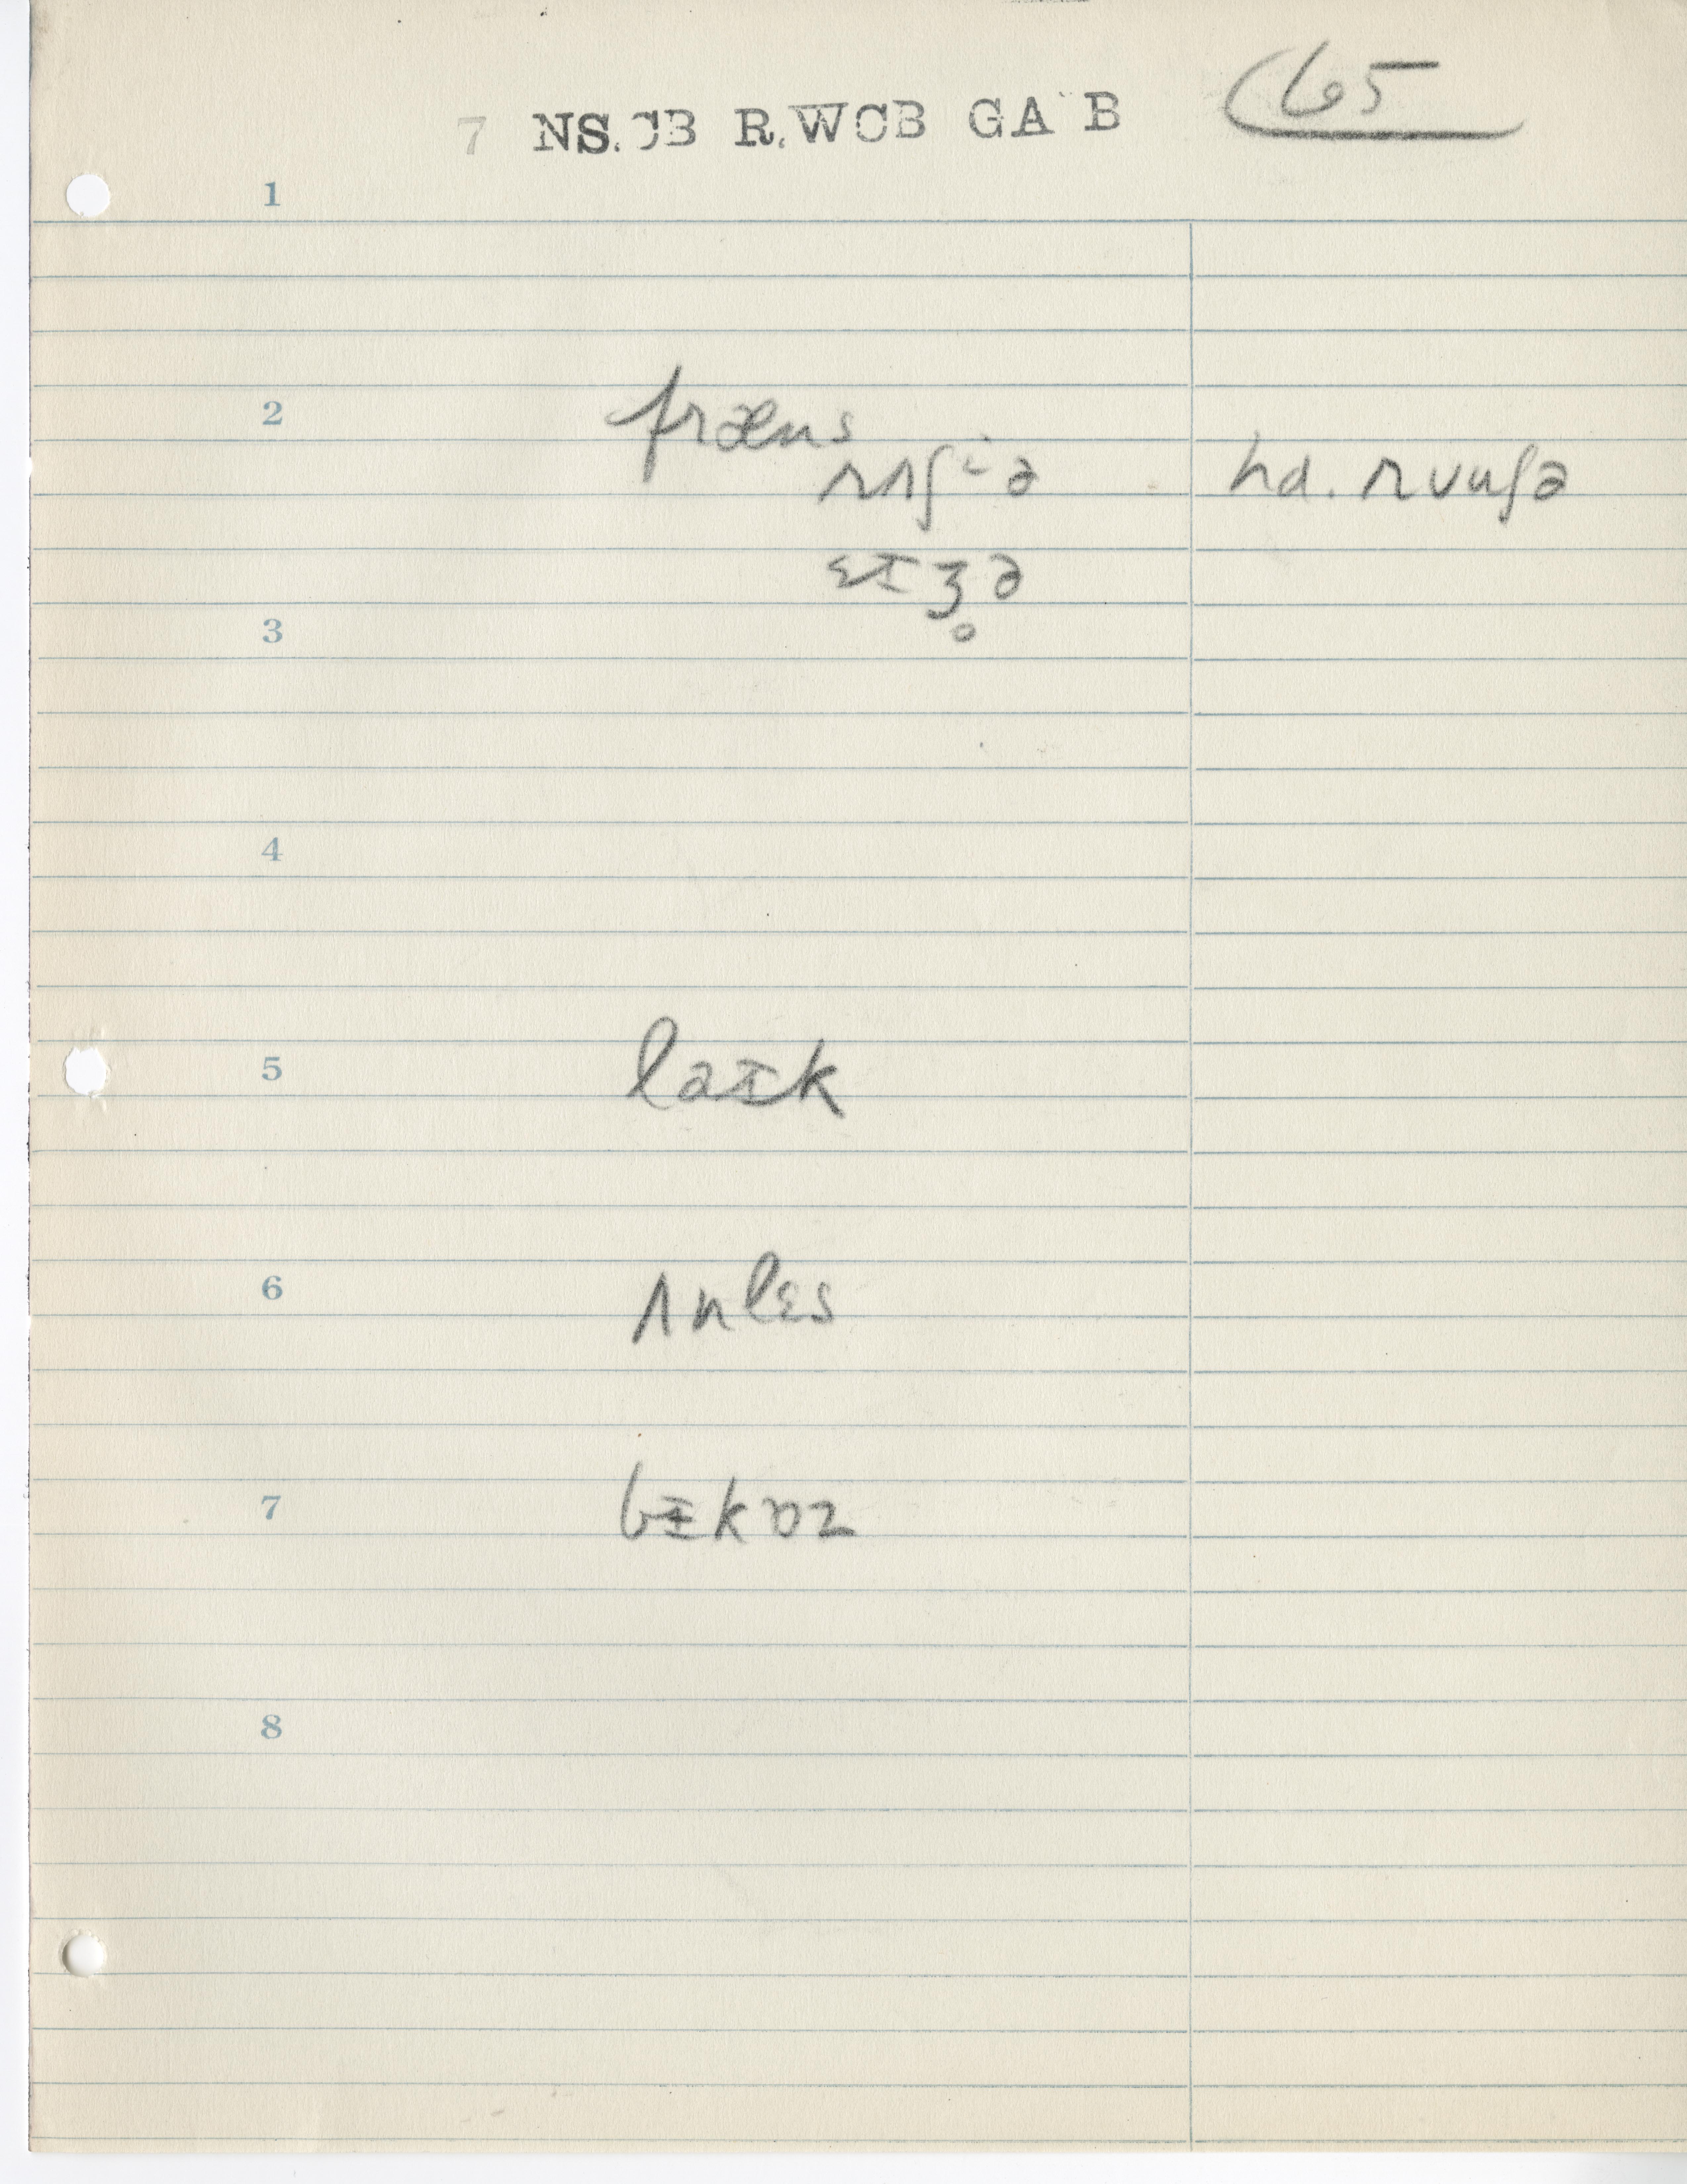 7 NS.CB R.WCB GA B 65
1
2 fræns
rʌʃiə hd. rʊuʃə
ɛɪʒ̥ə
3
4
5 laɪk
6 ʌnlɛs
7 bɪkɒz
8